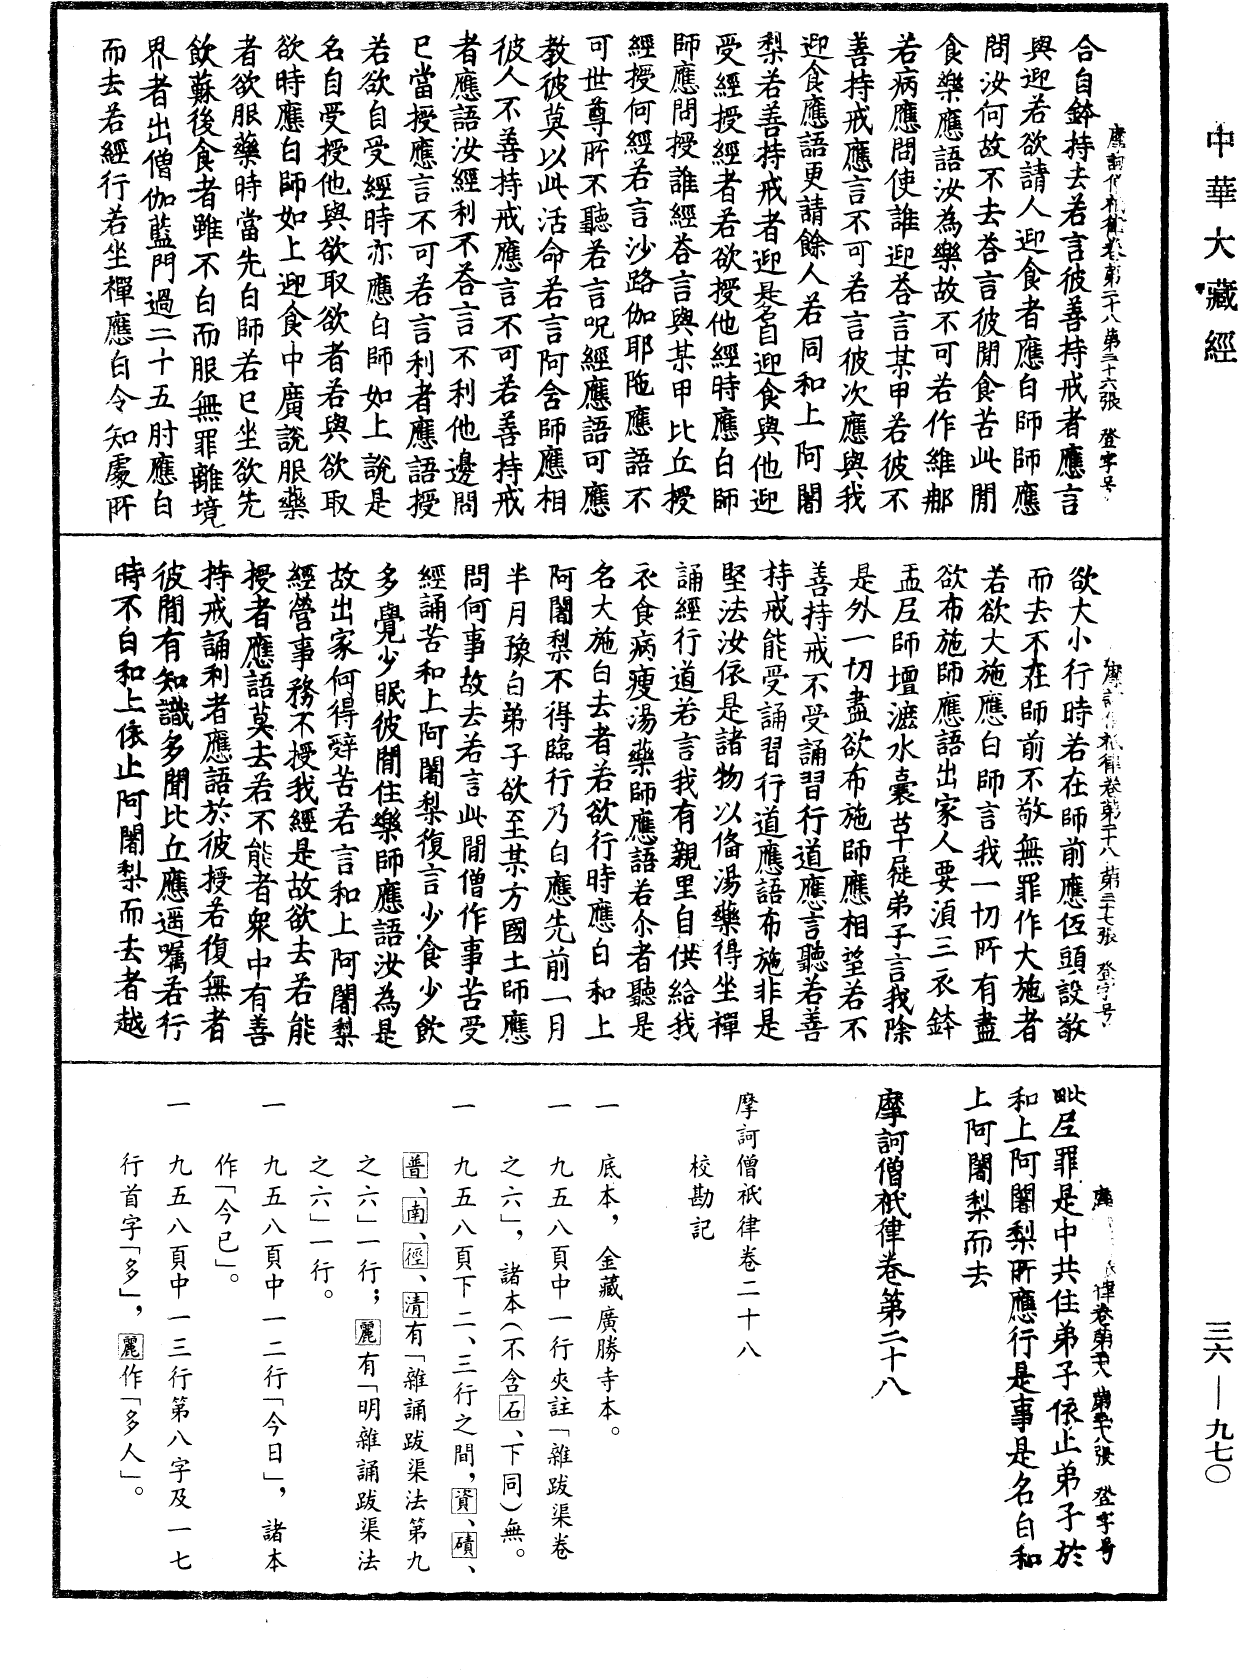 中華大藏經
三六—九七〇
摩訶僧祇律卷第二十八 第三十六張 登字号
合自鉢持去若言彼善持戒者應言
與迎若欲請人迎食者應白師師應
問汝何故不去荅言彼閒食苦此閒
食樂應語汝為樂故不可若作維那
若病應問使誰迎荅言某甲若彼不
善持戒應言不可若言彼次應與我
迎食應語更請餘人若同和上阿闍
梨若善持戒者迎是名自迎食與他迎
受經授經者若欲授他經時應白師
師應問授誰經荅言與某甲比丘授
經授何經若言沙路伽耶陁應語不
可世尊所不聽若言呪經應語可應
教彼莫以此活命若言阿含師應相
彼人不善持戒應言不可若善持戒
者應語汝經利不荅言不利他邊問
已當授應言不可若言利者應語授
若欲自受經時亦應白師如上說是
名自受授他與欲取欲者若與欲取
欲時應白師如上迎食中廣說服藥
者欲服藥時當先白師若已坐欲先
飲蘇後食者雖不白而服無罪離境
界者出僧伽藍門過二十五肘應白
而去若經行若坐禪應白令知處所
摩訶僧祇律卷第二十八 第三十七張 登字号
欲大小行時若在師前應伍頭設敬
而去不在師前不敬無罪作大施者
若欲大施應白師言我一切所有盡
欲布施師應語出家人要須三衣鉢
盂𡰱師壇漉水囊草屣弟子言我除
是外一切盡欲布施師應相望若不
善持戒不受誦習行道應言聽若善
持戒能受誦習行道應語布施非是
堅法汝依是諸物以俻湯藥得坐禪
誦經行道若言我有親里自供給我
衣食病瘦湯藥師應語若尒者聽是
名大施白去者若欲行時應白和上
阿闍梨不得臨行乃白應先前一月
半月豫白弟子欲至某方國土師應
問何事故去若言此閒僧作事苦受
經誦苦和上阿闍梨復言少食少飲
多覺少眠彼閒住樂師應語汝為是
故出家何得辤苦若言和上阿闍梨
經營事務不授我經是故欲去若能
授者應語莫去若不能者衆中有善
持戒誦利者應語於彼授若復無者
彼閒有知識多聞比丘應遥囑若行
時不白和上依止阿闍梨而去者越
律卷第二十八 第三十八張 登字号
毗𡰱罪是中共住弟子依止弟子於
和上阿闍梨所應行是事是名白和
上阿闍梨而去
摩訶僧祇律卷第二十八
摩訶僧祇律卷二十八
校勘記
一 底本，金藏廣勝寺本。
一 九五八頁中一行夾註「雜跋渠卷
之六」，諸本（不含石、下同）無。
一 九五八頁下二、三行之間，資、磧、
普、南、徑、清有「雜誦跋渠法第九
之六」一行；麗有「明雜誦跋渠法
之六」一行。
一 九五八頁中一二行「今日」，諸本
作「今已」。
一 九五八頁中一三行第八字及一七
行首字「多」，麗作「多人」。